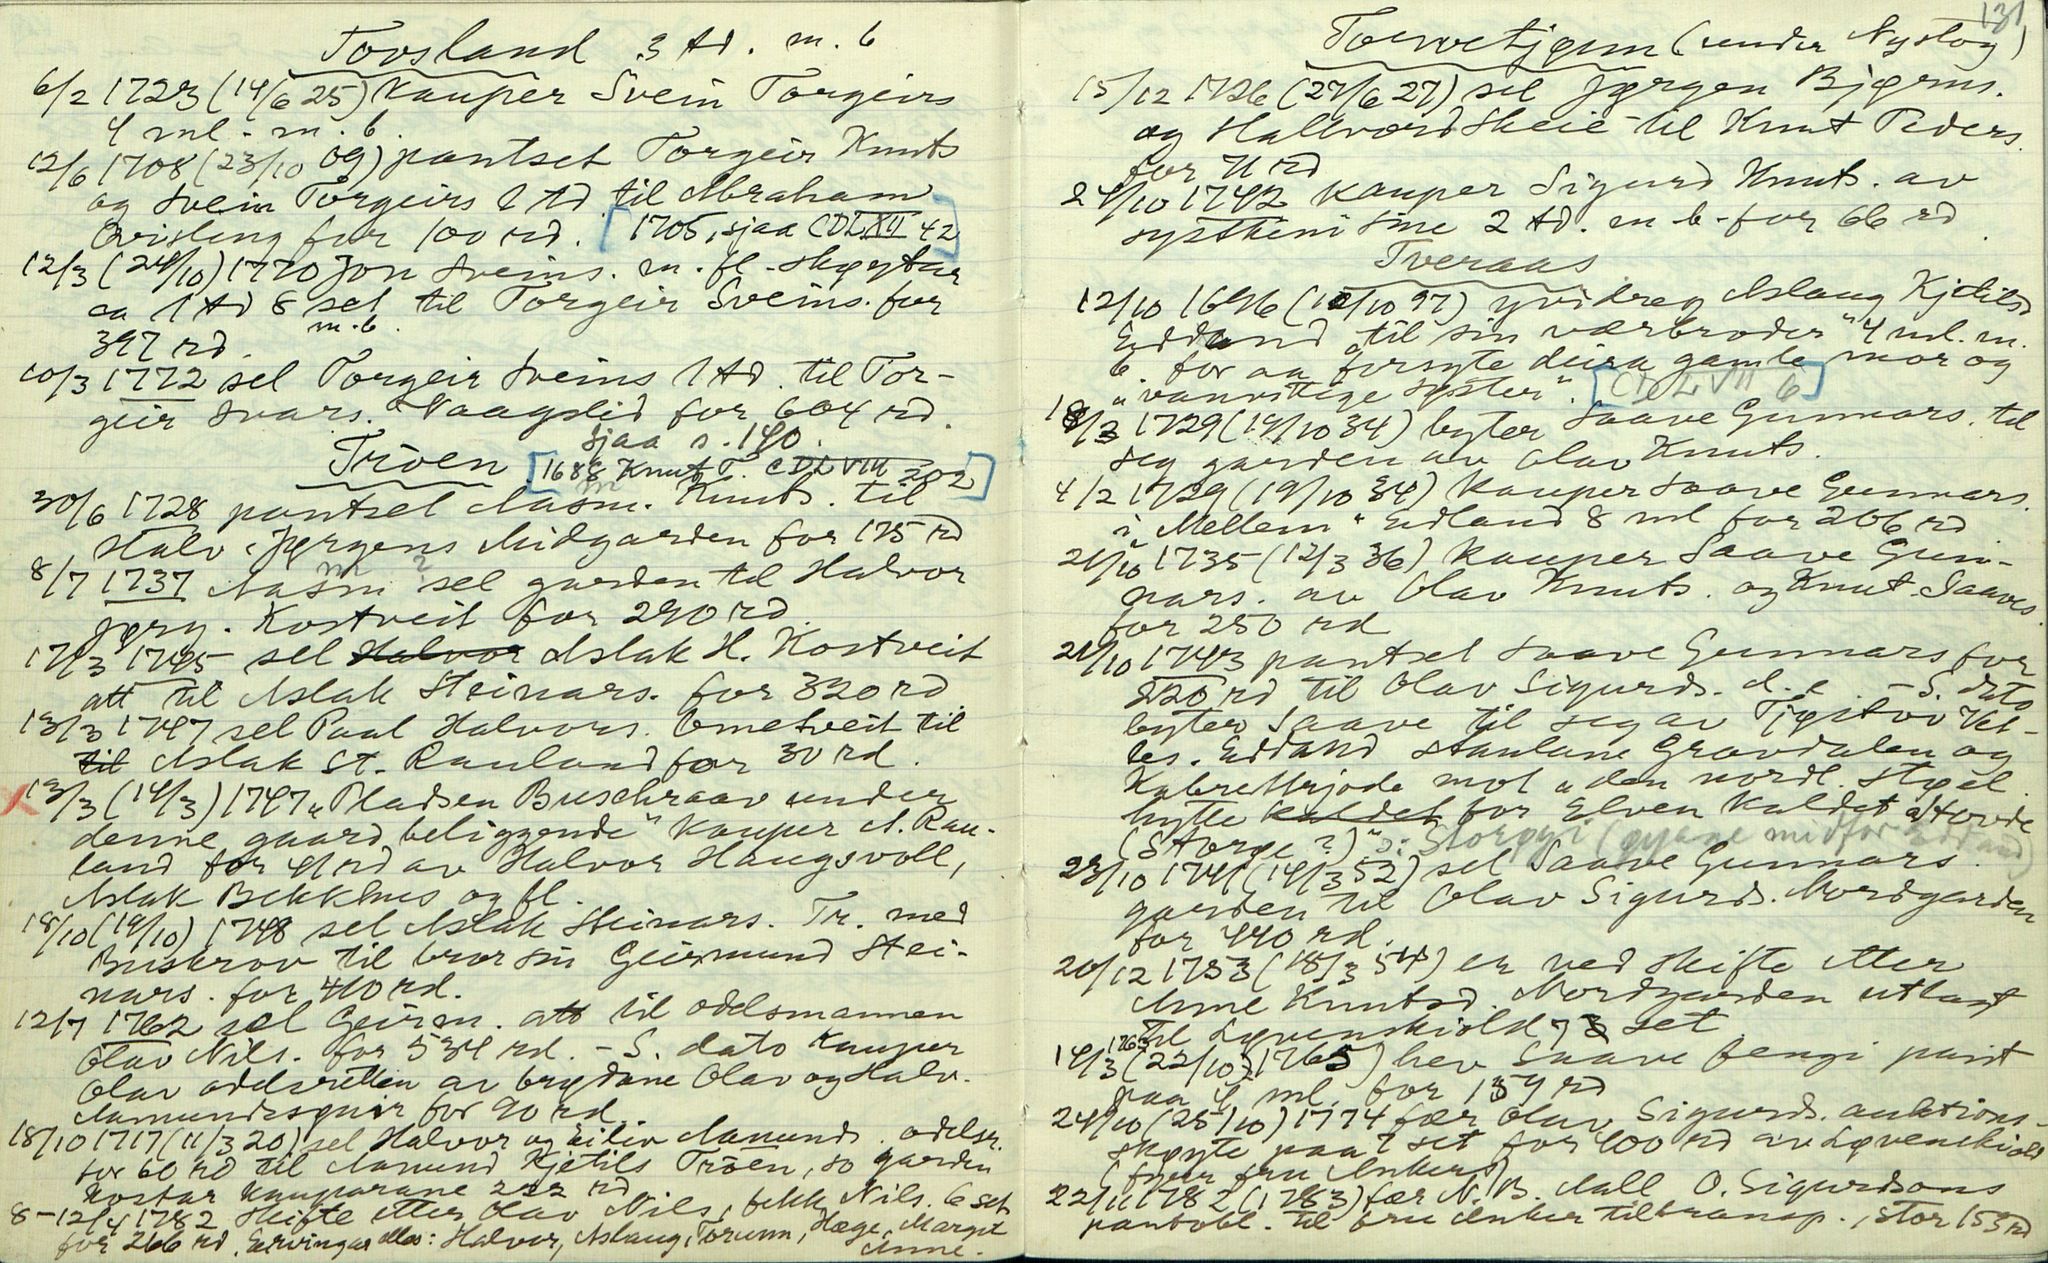 Tovsland 3 td. m. b
6/2 1723 (14/6 25) kauper Svein Torgeirs
4 ml. m. b.
12/6 1708 (23/10 09) pantset Torgeir Knuts
og Svein Torgeirs 1 td til Abraham
Qvisling for 100 rd. [1705, sjaa CDL XII 42]
12/3 (24/10) 1770 Jon Sveins. m. fl. skøytar
ca 1 td 8 set til Torgeir Sveins. for
m. b.
397 rd.
10/3 1772 sel Torgeir Sveins 1 td. til Tor-
geir Svars. Naagslid for 604 rd.
sjaa s. 140.
Tröen [1688 Knut T. CDL VIII 202]
30/6 1728 pantset Aasm. Knuts. til
Halv. Jørgens Midgarden for 175 rd
8/7 1737 Aasm sel garden til Halvor
Jørg. Kostveit for 290 rd.
17/3 1745 sel Halvor Aslak H. Kostveit
att til Aslak Steinars. for 320 rd
13/3 1747 sel Paal Halvors. Ometveit til
til Aslak St. Rauland for 30 rd.
x 13/3 (14/3) 1747 "Pladsen Buschraav under
denne gaard beliggende" kauper A. Rau-
land for 41 rd av Halvor Haugsvoll,
Aslak Bekkhus og fl.
18/10 (19/10) 1748 sel Aslak Steinars. Tr. med
Buskrov til bror sin Geirmund Stei-
nars. for 410 rd.
12/7 1762 sel Geirm. att til odelsmannen
Olav Nils. for 534 rd. - S. dato kauper
Olav odelsretten av brødane Olav og Halv.
Aamundssønir for 90 rd
18/10 1717 (11/3 20) sel Halvor og Eiliv Aamunds. odelsr.
for 60 rd til Aamund Kjetils Tröen, so garden
kostar kauparane 222 rd
8-12/4 1782 skifte etter Olav Nils, fekk Nils. 6 set
for 266 rd. Ervingar elles: Halvor, Aslaug, Torunn, Hæge, Margit
Anne.
131
Torvetjønn (under Nystog)
15/12 1726 (27/6 27) sel Jørgen Bjørns.
og Hallvord Skeie til Knut Peders.
for 71 rd
24/10 1742 kauper Sigurd Knuts. av
syskeni sine 2 td. m. b. for 66 rd.
Tveraas
12/10 1696 (12/10 97) yvidreg Aslaug Kjetilsd
Edland "til sin værbroder" 4 ml. m.
b. for aa forsyte deira gamle mor og
"vanvitige syster". [CDL VII 6]
18/3 1729 (19/10 34) byter Saave Gunnars. til
seg garden av Olav Knuts.
4/2 1729 (19/10 34) kauper Saave Gunnars.
i "Mellem" Edland 8 ml for 206 rd
21/10 1735 (12/3 36) kauper Saave Gun-
nars. av Olav Knuts. og Knut Saaves.
for 250 rd
21/10 1743 pantset Saave Gunnars for
220 rd til Olav Sigurds. d. e. - S. dato
byter Saave til seg av Tjøstov Vet-
les. Edland staulane Grovdalen og
Kabretlrjode mot "den nordl. støel
hytte kaldet for Elven kaldet Storde
(Storøe?)" o: Storøyi (øyane midfor Edland)
23/10 1741 (14/3 52) sel Saave Gunnars.
garden til Olav Sigurds. Nordgarden
for 440 rd.
20/12 1753 (18/3 54) er ved skifte etter
Anne Knutsd. Nordgarden utlagt
til Løvenskiold 7 set
14/3 1763 (22/10 1765) hev Saave fengi pant
paa 4 ml. for 159 rd
24/10 (25/10) 1774 fær Olav Sigurds. auktions-
skøyte paa 7 set for 400 rd av Løvenskiold
(fyrr fru Ankers)
22/11 1782 (1783) fær N. B. Aall O. Sigurdsons
pantobl. til fru Anker tiltransp., stor 153 rd